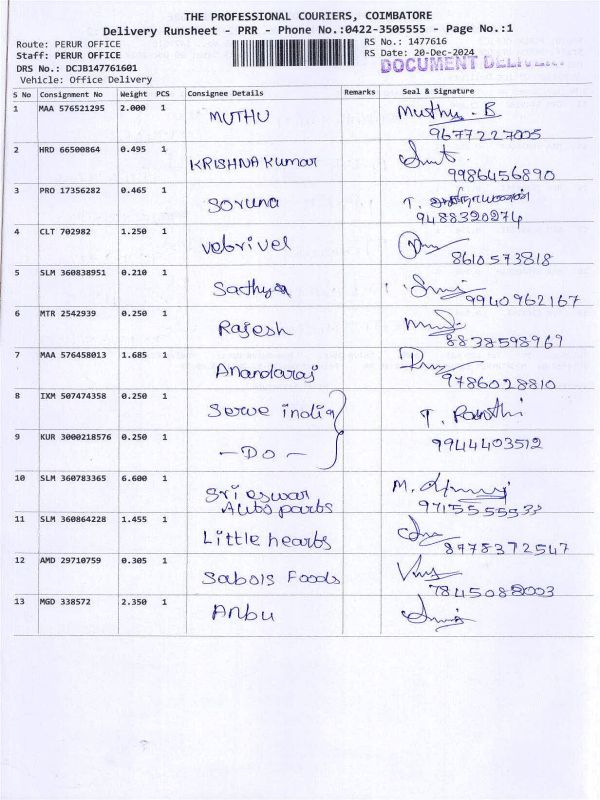 THE PROFESSIONAL COURIERS, COIMBATORE
Delivery Runsheet - PRR - Phone No.:0422-3505555 - Page No.:1
Route: PERUR OFFICE
RS No.: 1477616
Staff: PERUR OFFICE
RS Date: 20-Dec-2024
DRS No.: DCJB147761601
DOCUMENT DELIVERY
Vehicle: Office Delivery
S No Consignment No Weight PCS Consignee Details Remarks Seal & Signature
1 MAA 576521295 2.000 1 MUTHU Muthu. B
9677227005
2 HRD 66500864 0.495 1 KRISHNA Kumar
9986456890
3 PRO 17356282 0.465 1 Soruna T.
9488320274
4 CLT 702982 1.250 1 vetrivel
8610573818
5 SLM 360838951 0.210 1 Sathya
9940962167
6 MTR 2542939 0.250 1 Rajesh
8838598969
7 MAA 576458013 1.685 1 Anandaraj
9786028810
8 IXM 507474358 0.250 1 Serve india T.
9 KUR 3000218576 0.250 1 - Do - 9944403512
10 SLM 360783365 6.600 1 Sri eswar M.
Auto parts 9715555533
11 SLM 360864228 1.455 1 Little hearts
8778372547
12 AMD 29710759 0.305 1 Sabols Foods
7845088003
13 MGD 338572 2.350 1 Anbu